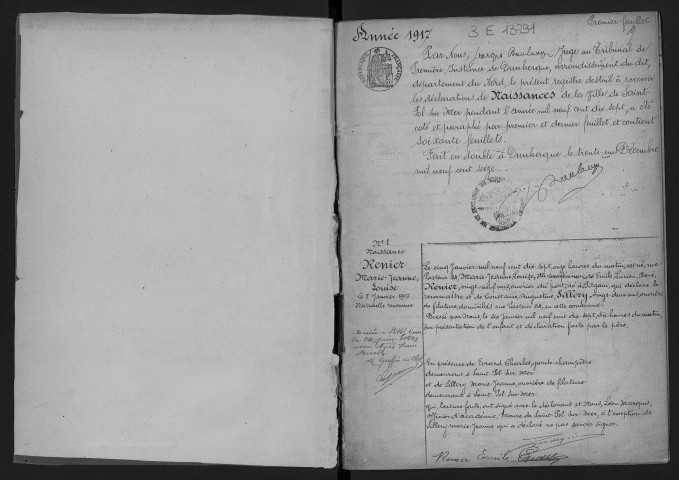 Premier feuillet
Année 1917 3 E 13291
Par Nous, Juge au Tribunal de
Première Instance de Dunkerque, arrondissement du dit,
département du Nord, le présent registre destiné à recevoir
les déclarations de Naissances de la Ville de Saint
Pol sur Mer pendant l'année mil neuf cent dix sept, a été
coté et paraphé par premier et dernier feuillet et contient
soixante feuillets.
Fait en double à Dunkerque le trente un Décembre
mil neuf cent seize.
N° 1
Naissance
Renier
Marie-Jeanne,
Louise
le 5 Janvier 1917
Naturelle reconnue
Le cinq Janvier mil neuf cent dix sept, onze heures du matin, est née, rue
Pasteur Marie-Jeanne, Louise, de Emile Lucien, René,
Renier, vingt neuf ans, ouvrier du port, né à qui déclare la
reconnaître et de Constance, Augustine, Sillery, vingt deux ans, ouvrière
de filature, domiciliés rue Pasteur en cette commune.
Dressé par Nous, le six Janvier mil neuf cent dix sept, dix heures du matin,
sur présentation de l'enfant et déclaration faite par le père,
En présence de Evrard Charles, garde champêtre
demeurant à Saint Pol sur Mer
et de Sillery Marie Jeanne, ouvrière de filature
demeurant à Saint Pol sur Mer
qui, lecture faite, ont signé avec le déclarant et Nous, Léon Marquis,
Officier d'Académie, Maire de Saint-Pol-sur-Mer, à l'exception de
Sillery Marie Jeanne qui a déclaré ne pas savoir signer.
Renier Emile